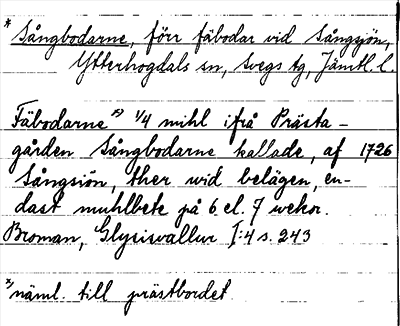 * Sångbodarne, förr fäbodar vid Sångsjön,
Ytterhogdals sn, Svegs tg, Jämtl. l.
Fäbodarne *) 1/4 mihl ifrå Prästa-
gården Sångbodarne kallade, af 1726
Sångsiön, ther wid belägen, en-
dast muhlbete på 6 el. 7 wekor.
Broman, Glysisvallur I:4 s. 243
*) näml. till prästbordet